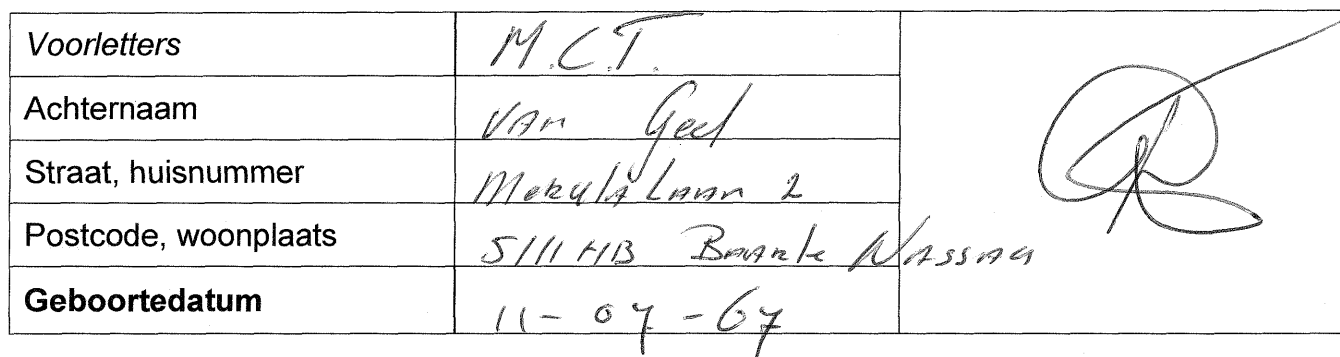 Voorletters M.C.T.
Achternaam VAN Geel
Straat, huisnummer Merula Laan 2
Postcode, woonplaats 5111 HB Baarle NASSAU
Geboortedatum 11-07-67